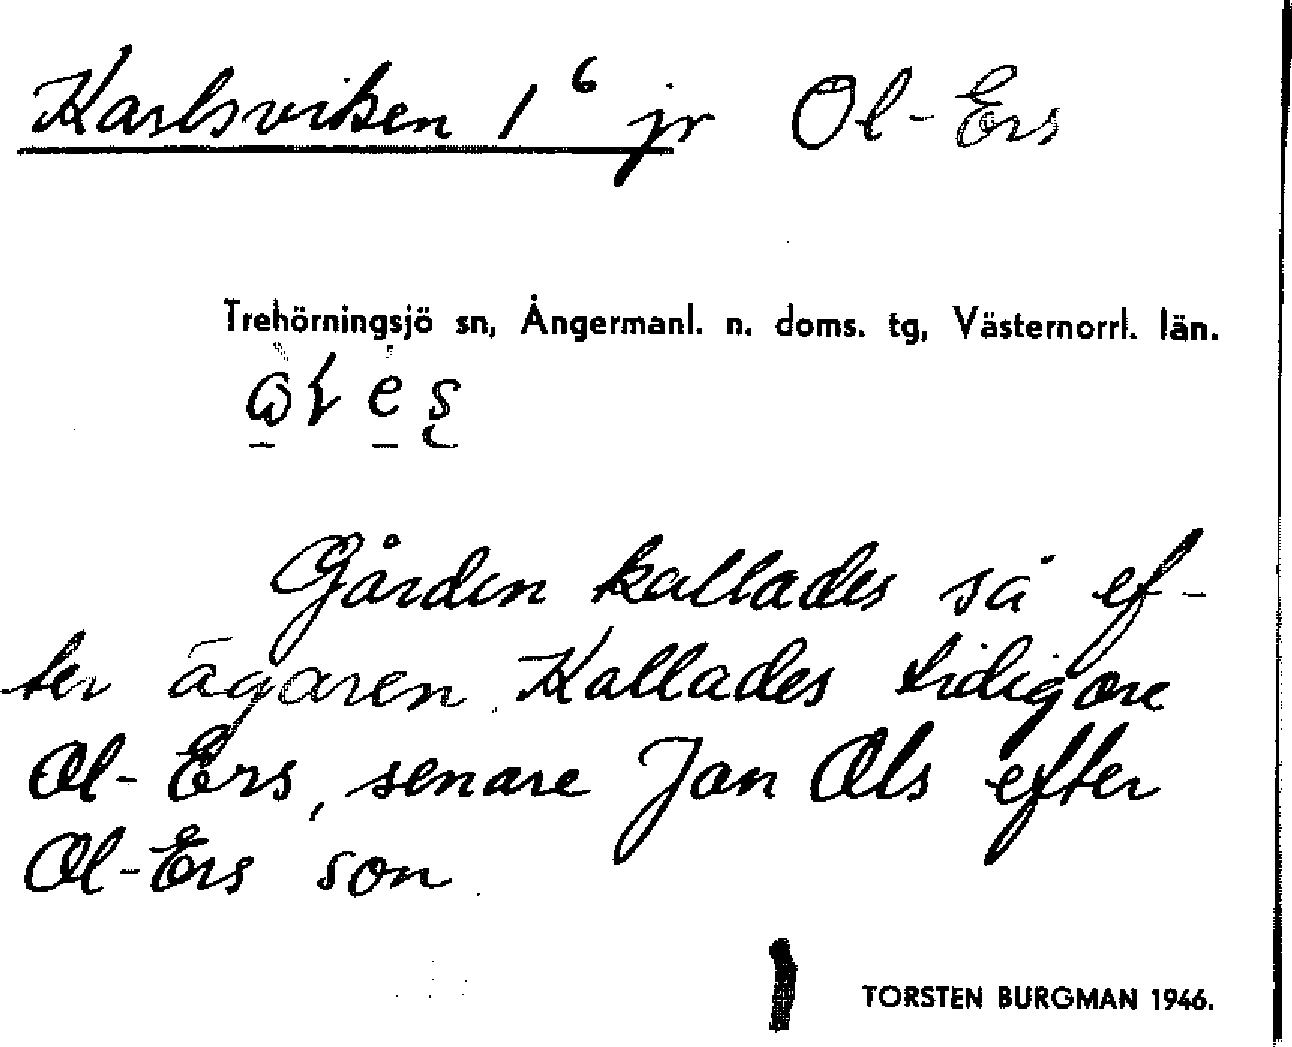 Karlsviken 1⁶ jr Ol-Ers
Trehörningsjö sn, Ångermanl. n. doms. tg, Västernorrl. län.
Gården kallades så ef-
ter ägaren. Kallades tidigare
Ol-Ers, senare Jan Ols efter
Ol-Ers son.
TORSTEN BURGMAN 1946.